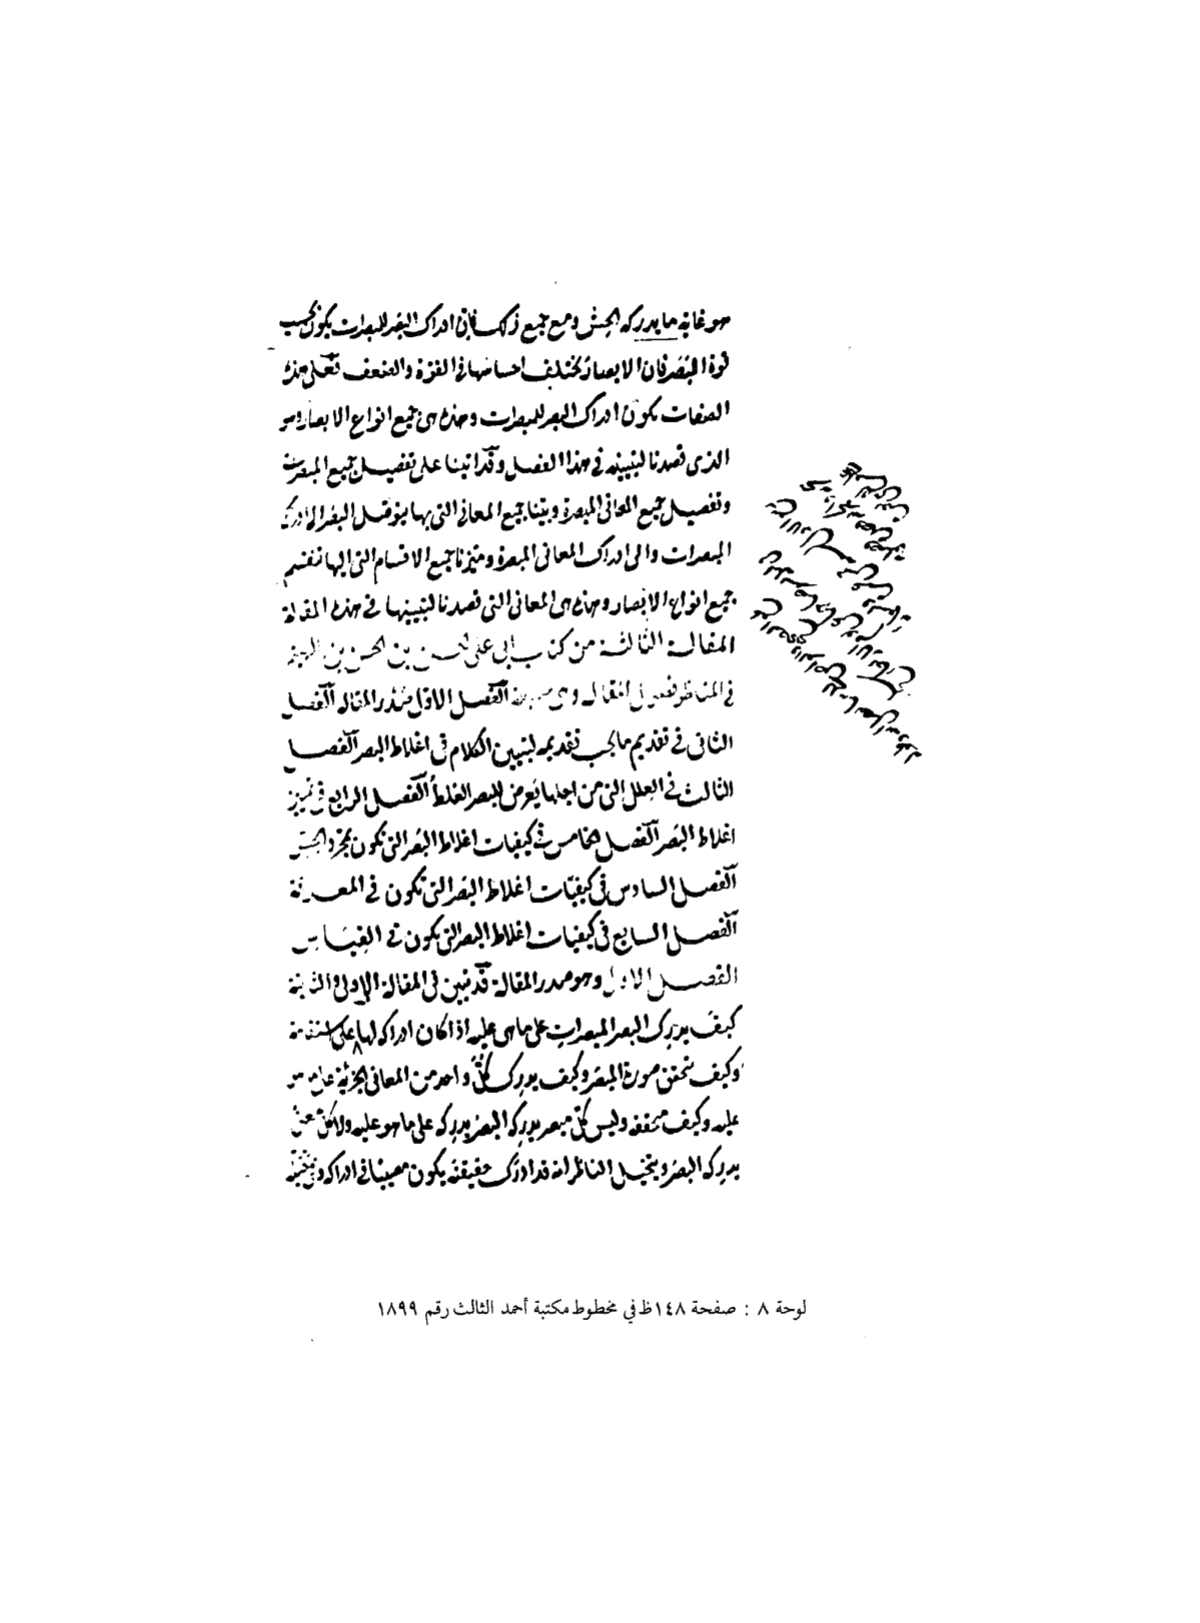 هو غاية ما يدركه الحس ومع جميع ذلك فان ادراك البصر للمبصرات يكون بحسب
قوة البصر فان الابصار يختلف احساسها في القوة والضعف فعلى هذه
الصفات يكون ادراك البصر للمبصرات وهذه هى جميع انواع الابصار وهو
الذى قصدنا لتبيينه في هذا الفصل وقد اتينا على تفصيل جميع المبصرات
وتفصيل جميع المعانى المبصرة وبينا جميع المعانى التى بها يتوصل البصر الى ادراك
المبصرات والى ادراك المعانى المبصرة وميزنا جميع الاقسام التى اليها تنقسم
جميع انواع الابصار وهذه هى المعانى التى قصدنا لتبيينها في هذه المقالة
المقالة الثالثة من كتاب ابى على الحسن بن الحسن بن الهيثم
في المناظر فصول المقالة وهى سبعة الفصل الاول صدر المقالة الفصل
الثانى في تقديم ما يجب تقديمه لتبيين الكلام في اغلاط البصر الفصل
الثالث في العلل التى من اجلها يعرض للبصر الغلط الفصل الرابع في تمييز
اغلاط البصر الفصل الخامس في كيفيات اغلاط البصر التى تكون بمجرد الحس
الفصل السادس في كيفيات اغلاط البصر التى تكون في المعرفة
الفصل السابع في كيفيات اغلاط البصر التى يكون في القياس
الفصل الاول وهو صدر المقالة قد تبين في المقالة الاولى والثانية
كيف يدرك البصر المبصرات على ما هى عليه اذا كان ادراكه لها على استقامة
وكيف يتحقق صورة المبصر وكيف يدرك كل واحد من المعانى الجزئية على ما هو
عليه وكيف يتحققه وليس كل مبصر يدركه البصر يدركه على ما هو عليه ولا كل معنى
يدركه البصر ويتخيل الناظر انه قد ادرك حقيقته يكون مصيبا في ادراكه وفى
لوحة ٨ : صفحة ١٤٨ظ في مخطوط مكتبة أحمد الثالث رقم ١٨٩٩